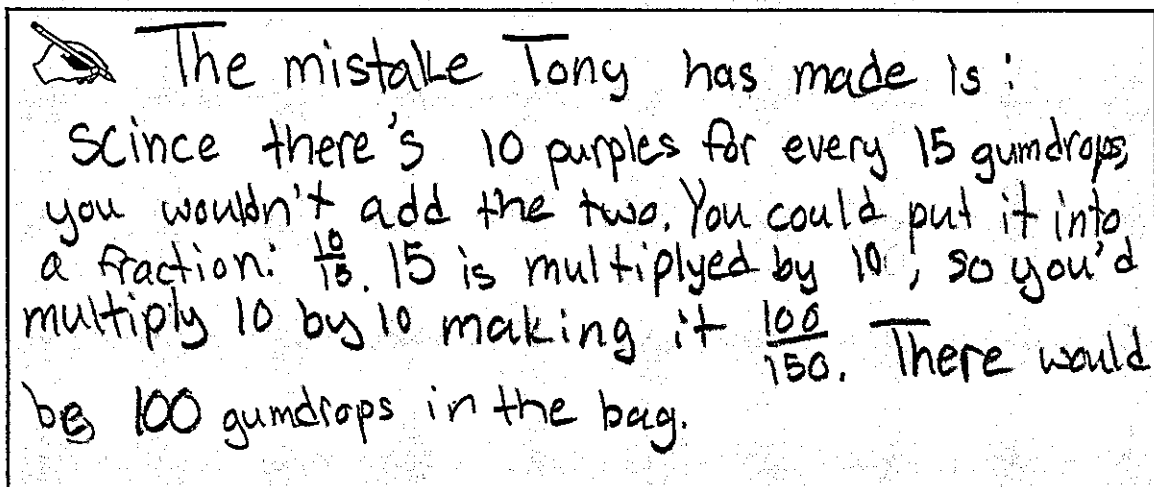 The mistake Tony has made is:
Scince there's 10 purples for every 15 gumdrops,
you wouldn't add the two. You could put it into
a fraction: 10/15. 15 is multiplyed by 10, so you'd
multiply 10 by 10 making it 100/150. There would
be 100 gumdrops in the bag.